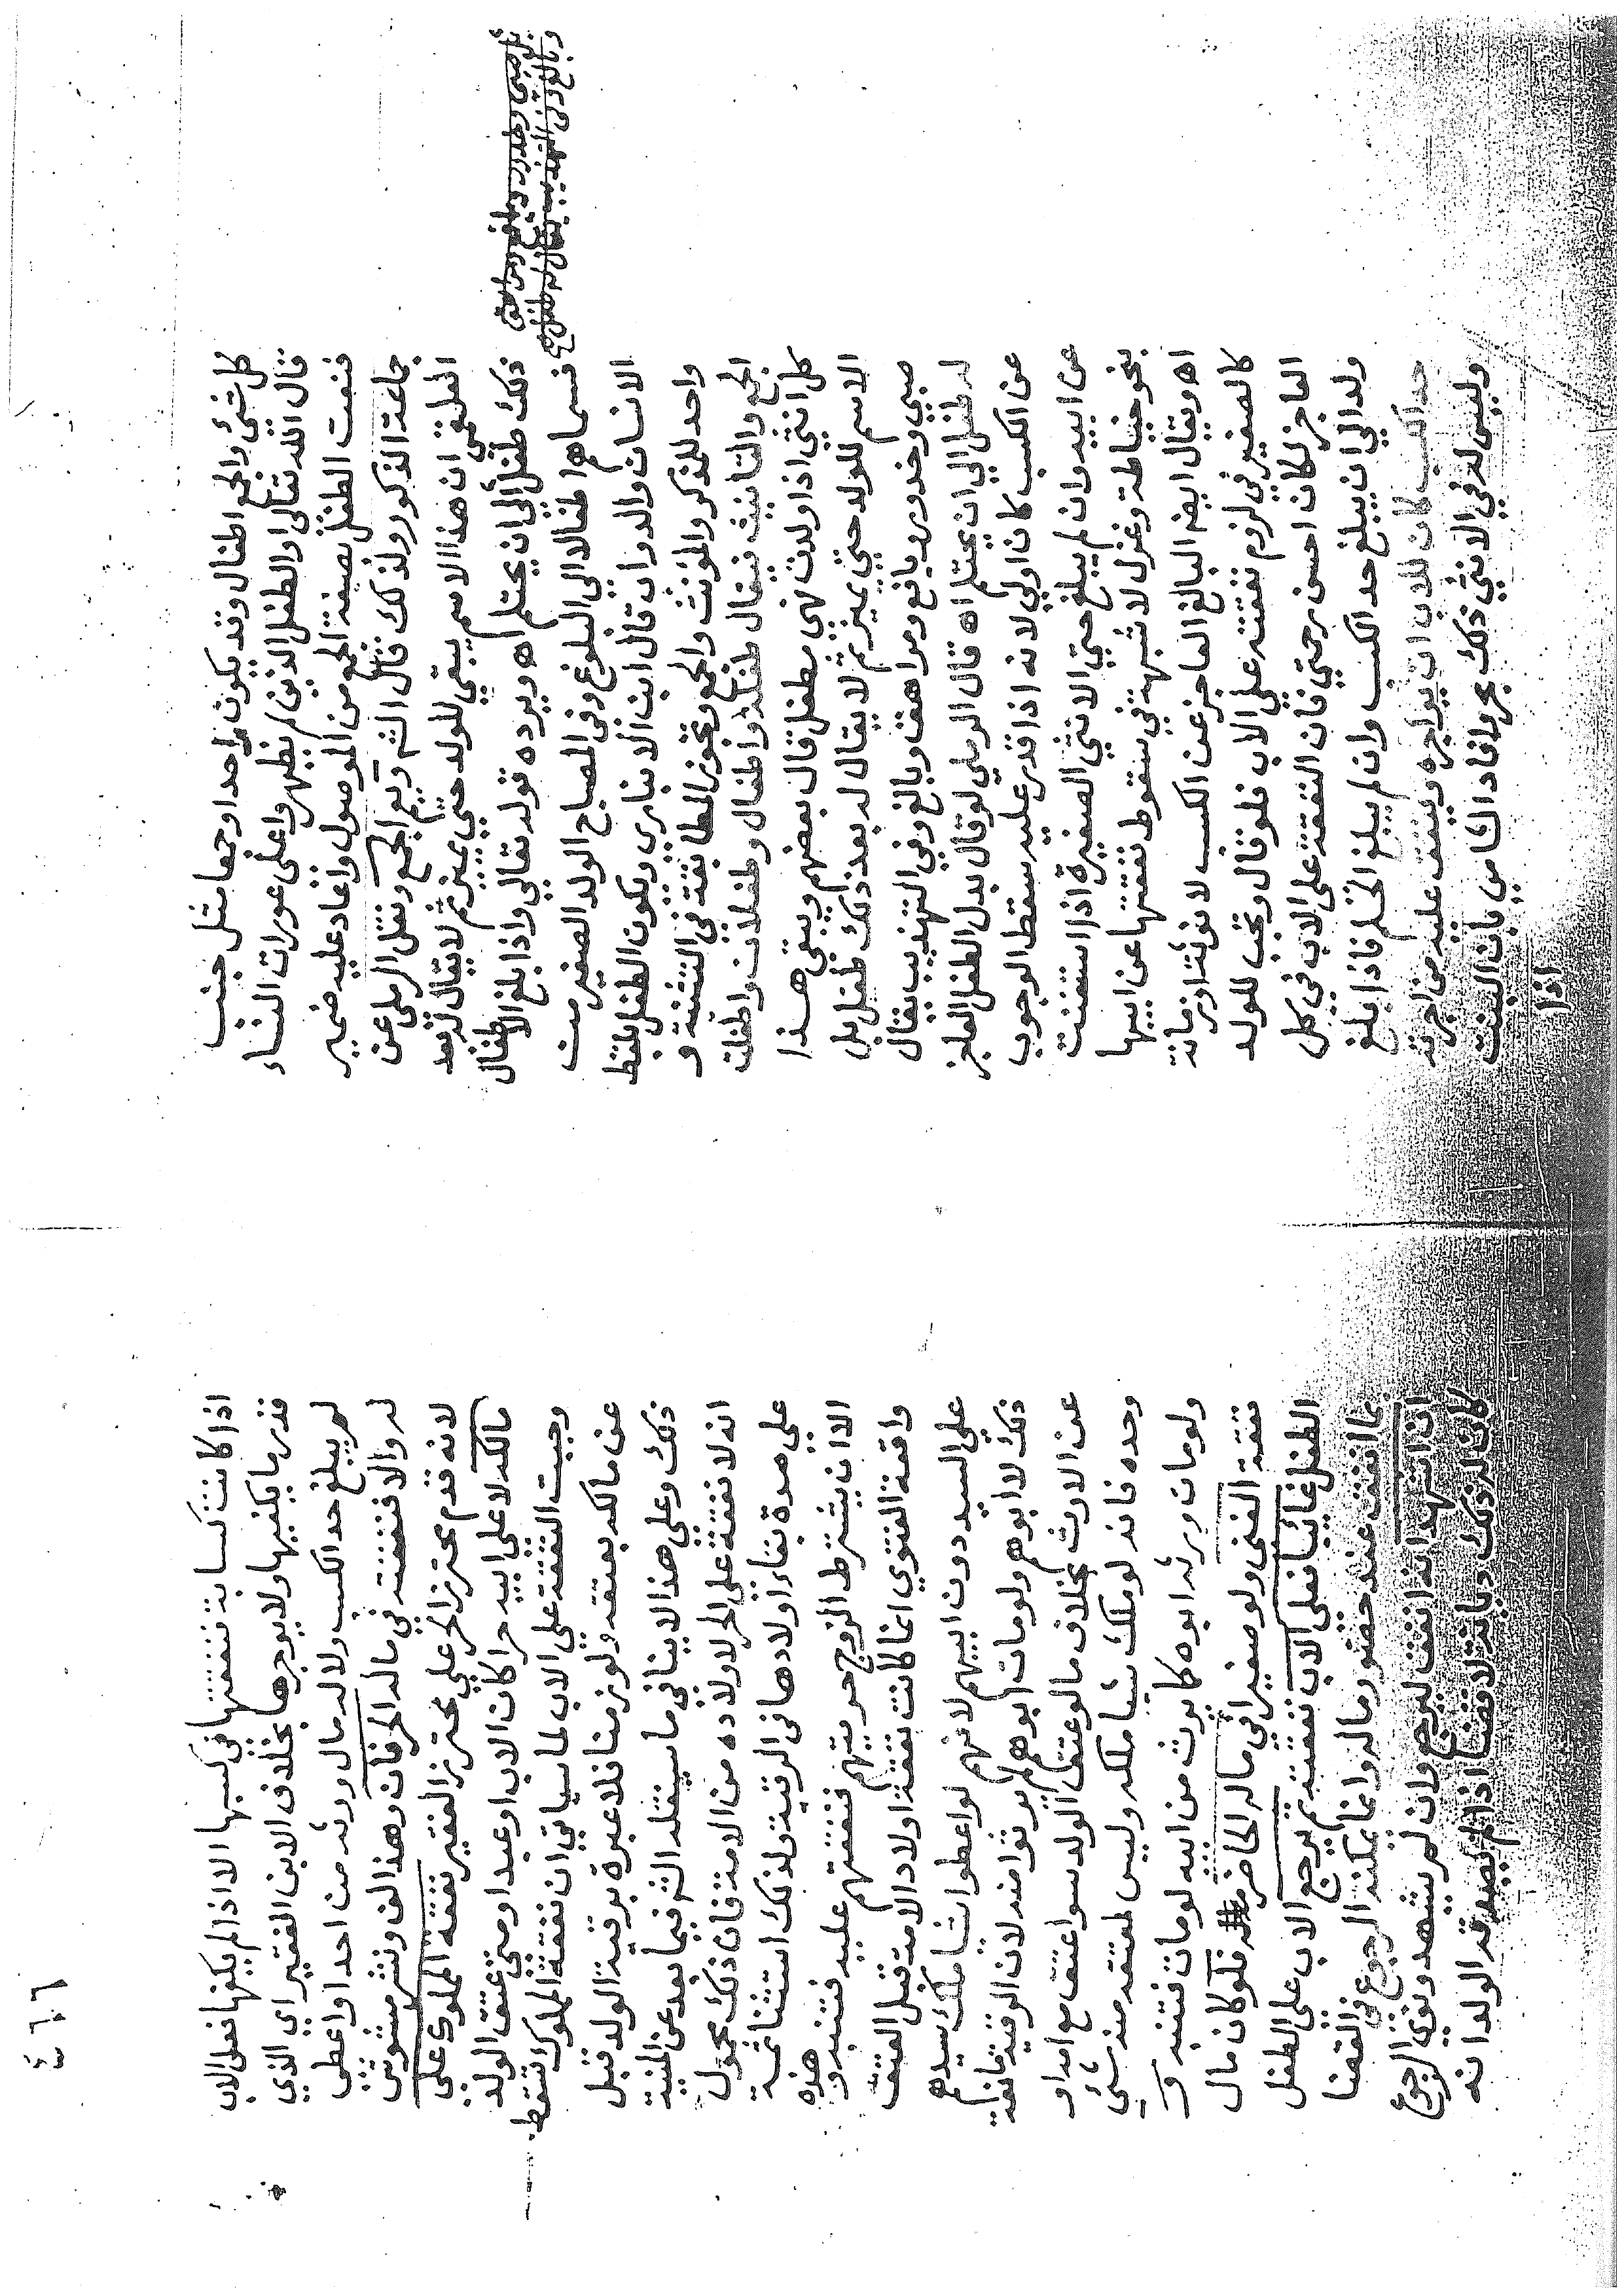 كل شئ والجمع اطفال وقد يكون واحدا وجمعا مثل جنب
قال الله تعالى او الطفل الذين لم يظهروا على عورات النساء
فنعت الطفل بصيغة الجمع من الموصول واعاد عليه ضمير
جماعة الذكور ولذلك قال الشم ويعم الجمع ونقل الرملي عن
العلقمي ان هذا الاسم يبقي للولد حتي يميز ثم لا يقال له بعد
ذلك طفل الي ان يحتلم اه ويرده قوله تعالي واذا بلغ الاطفال
فسماهم اطفالا الي البلوغ وفي المصباح الولد الصغير من
الانسان والدواب قال ابن الانباري ويكون الطفل بلفظ
واحد للمذكر والمؤنث والجمع وتجوز المطابقة في التثنية و
الجمع والتانيث فيقال طفلة واطفال وطفلات واطفلت
كل انثي اذا ولدت فهي مطفل قال بعضهم ويبقي هذا
الاسم للولد حتي يميز ثم لا يقال له بعد ذلك طفل بل
صبي وحزور ويافع ومراهق وبالغ وفي التهذيب يقال
له طفل الي ان يحتلم اه قال الرملي لو قال بدل الطفل العاجز
عن الكسب كان اولي لانه اذا قدر عليه سقط الوجوب
عن ابيه وان لم يبلغ حتي الانثي الصغيرة اذا استغنت
بنحو خياطة وغزل لا شبهة في سقوط نفقتها عن ابيها
اه ويقال ايضا البالغ العاجز عن الكسب لانوثة او زمانة
كالصغير في لزوم نفقته علي الاب فلو قال وتجب للولد
العاجز لكان احسن رحمتي فان النفقة على الاب في كل
ولد الي ان يبلغ حد الكسب وان لم يبلغ الحلم فاذا بلغ
حد الكسب كان للاب ان يواجره وينفق عليه من اجرته
وليس له في الانثي ذلك بحر وافاد الشامي بان البنت
اذا
بل صبي وحزور ويافع ومراهق
وبالغ وفي التهذيب يقال له طفل
٤٦٦
اذا كانت كسابة تنفقتها في كسبها الا اذا لم يكفها فعلي الاب
قدر ما يكفيها ولا يوجرها بخلاف الابن الفقير اي الذي
لم يبلغ حد الكسب ولا له مال ورثه من احد او اعطي
له والا فنفقته في ماله الحر فان هذا لف ونشر مشوش
لانه قدم محترز الحر علي محترز الفقير نفقة المملوك علي
مالكه لا علي ابيه حرا كان الاب او عبدا ومتي عتق الولد
وجبت النفقة علي الاب لما سياتي ان نفقة المملوك تسقط
عن مالكه بعتقه ولو زمنا فلا عبرة برقية الولد قبل
ذلك وعلي هذا لا ينافي ما سينقله الشم فيما بعد عن المنية
انه لا نفقة علي الحر لاولاده من الامة فان ذلك محمول
علي مدة بقاء اولادها في الرقية ولذلك استثنا ثمة
الا ان يشترط الزوج حريتهم فنفقتهم عليه فتنبه و هذه
واقعة الفتوي انما كانت نفقة اولاد الامة قبل العتق
علي السيد دون ابيهم لانهم لو اعطوا شيا ملكه سيدهم
ذلك لا ابوهم ولو مات ابوهم لم يرثوا منه لان الرقية مانعة
عن الارث بخلاف ما لو عتق الولد سوا عتق مع امه او
وحده فانه لو ملك شيا ملكه وليس لمعتقه منه شي
ولو مات ويرثه ابوه كما يرث من ابيه لو مات فتنبه و
نفقة الغني ولو صغيرا في ماله الحاضر فلو كان مال
الطفل غائبا فعلي الاب نفقته ثم يرجع الاب علي الطفل
بما انفق عنه حضور ماله وانما يمكنه الرجوع في القضا
ان اشهد انه انفق ليرجع وان لم يشهد ونوي الرجوع
كان له ذلك ديانة لا قضا اذا لم يصدقه الولد انه